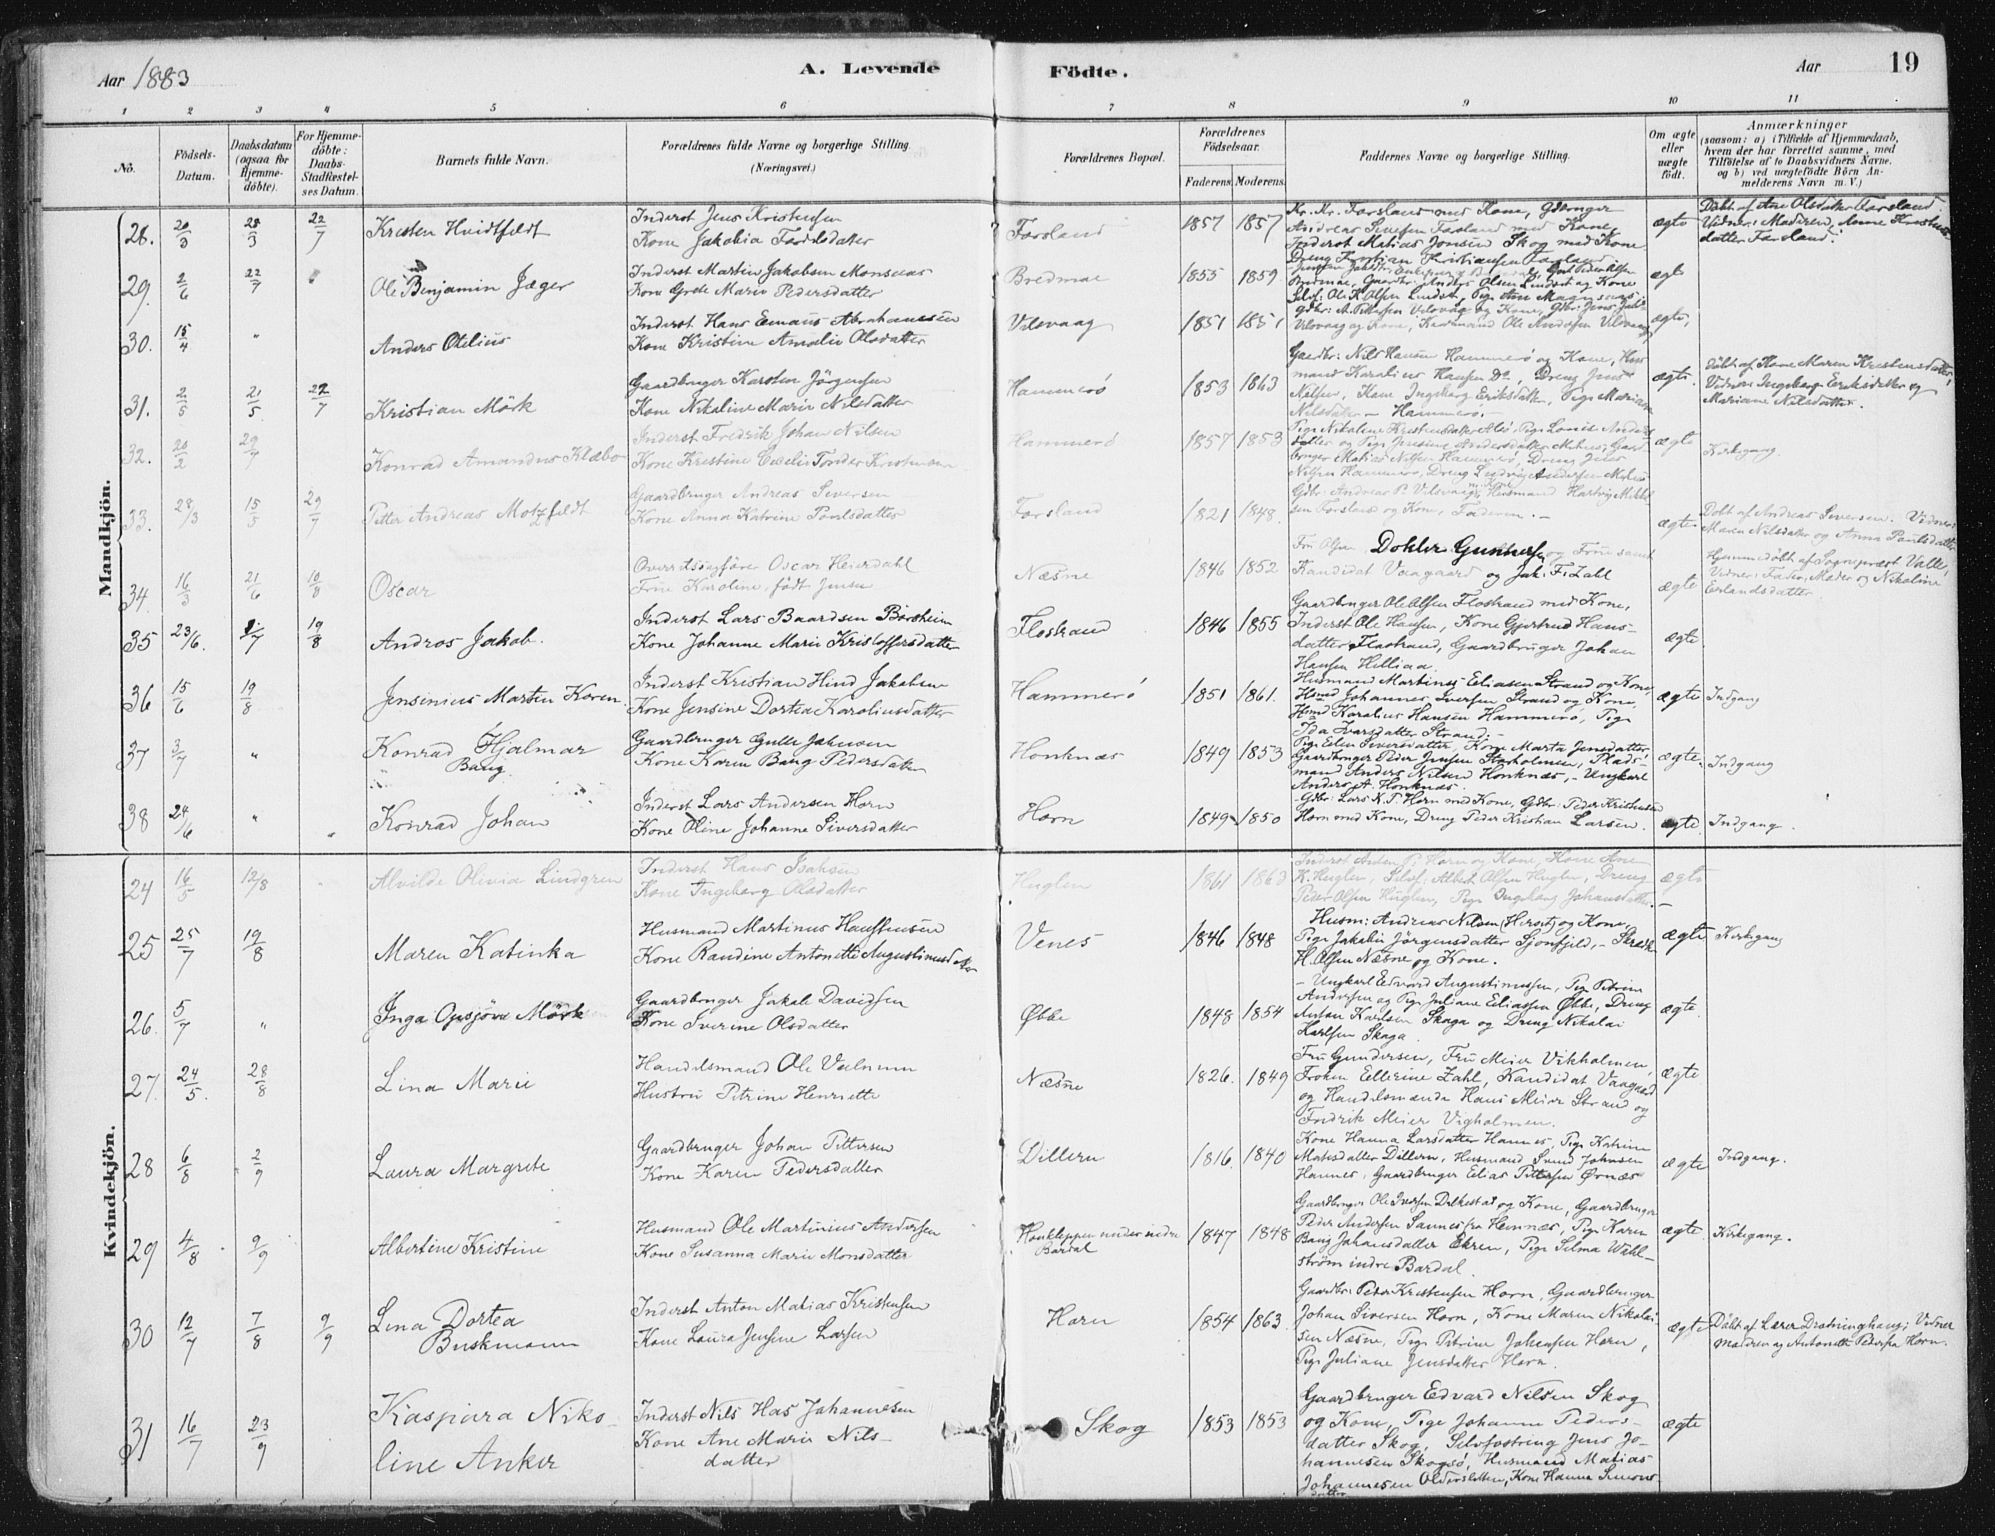 Aar 1883
A. Levende
Födte.
Aar
19
1 2 3 4 5 6 7 8 9 10 11
No.
Födsels-
Datum.
Daabsdatum
(ogsaa for
Hjemme-
döbte).
For Hjemme-
döbte:
Daabs-
Stadfæstel-
ses Datum.
Barnets fulde Navn.
Forældrenes fulde Navne og borgerlige Stilling.
(Næringsvei.)
Forældrenes Bopæl.
Forældrenes
Födselsaar.
Faderens.
Moderens.
Faddernes Navne og borgerlige Stilling.
Om ægte
eller
uægte
födt.
Anmærkninger
(saasom: a) i Tilfælde af Hjemmedaab,
hvem der har forrettet samme, med
Tilföielse af to Daabsvidners Navne,
og b) ved uægtefödte Börn An-
melderens Navn m. V.)
Mandkjön.
28. 20/3 28/3 22/7 Kresten Hvidtfeldt
Inderst Jens Kristensen
Kone Jakobia
Forsland 1857 1857
Andreas Forsland med Kone,
Inderst Matias Jonsen Skog med Kone
ægte
29. 2/6 22/7 Ole Benjamin Jæger
Inderst Martin Jakobsen Monsaas
Kone Grete Marie Pedersdatter
Bredmae 1855 1859
ægt
30. 15/4 " Anders Otelius
Inderst Hans Emaus Abrahamsen
Kone Kristine Amalie Olsdatter
Vilsvaag 1851 1851
ægte,
31. 2/5 21/5 22/7 Kristian Mörk
Gaardbruger Karsten Jörgensen
Kone Nikoline Marie Nilsdatter
Hammerö 1853 1863
Gaardbr: Nils Hansen Hammerö og Kone, Hus-
mand Karolius Hansen Do, Dreng Jens
Nilsen, Kone Ingeborg Eriksdatter, Pige Mariane
Nilsdatter - Hammerö. -
ægte.
Döbt af Kone Maren Krestensdatter,
Vidner: Ingeborg Eriksdatter og
Mariane Nilsdatter.
32. 20/2 29/7 Konrad Amandus Klæbo
Inderst Fredrik Johan Nilsen
Kone Kristine Tonder Kristensen
Hammerö 1857 1853
ægte
Kirkegang.
33. 28/3 15/5 29/7 Petter Andreas Motzfeldt
Gaardbruger Andreas Sivertsen
Kone Anna Katrine Poulsdatter
Forsland 1821 1848.
Gdbr: Andreas P. Vilsvaag m. Kone, Husmand Hartvig Mikkel-
sen Forsland og Kone, Faderen. -
ægte
Döbt af Andreas Seversen. Vidner:
Maren Nilsdatter og Anna Paulsdatter
34. 16/3 21/6 10/8 Oscar
Overretssagförer Oscar Heierdahl
Frue Karoline, födt Jensen
Næsne 1846 1852
Fru Olsen Doktor Gundersen og Frue samt
Kandidat Vaagaard og Jak. F. Zahl
ægte
Hjemmedöbt af Sognepræst Valle,
Vidner: Fader, Moder og Nikoline
Erlandsdatter.
35 23/6. 1/7 19/8 Andros Jakob.
Inderst Lars Baardsen Börsheim
Kone Johanne Marie Kristoffersdatter
Flostrand 1846 1855
Gaardbruger Ole Olsen Flostrand med Kone,
Inderst Ole Hansen, Kone Gjertrud Hans-
datter Flostrand, Gaardbruger Johan
Hansen Helliaa.
ægte.
36 15/6 19/8 Jensinius Martin Koren.
Inderst Kristian Hind Jakobsen
Kone Jensine Dortea Karoliusdatter
Hammerö 1851 1861.
Husmand Martinus Eliassen Strand og Kone,
Hmd Johannes Iversen Strand og Kone,
Hmd Karolius Hansen Hammerö, Pige
Ida Ivarsdatter Strand. -
ægte
Indgang
37 3/7 " Konrad Hjalmar
Bang.
Gaardbruger Gulle Johnsen
Kone Karen Bang Pedersdatter
Honknæs 1849 1853
Pige Elen Siversdatter, Kone Marta Jensdatter,
Gaardbruger Peder Jensen Storholmen, Plads-
mand Anders Nilsen Honknæs, - Ungkarl
Anders A. Honknæs.
ægte.
Indgang
38 24/6 " " Konrad Johan
Inderst Lars Andersen Horn
Kone Oline Johanne Siversdatter
Horn 1849 1850
Gdbr: Lars N. P. Horn med Kone, Gdbr: Peder Kristensen
Horn med Kone, Dreng Peder Kristian Larsen.
ægte.
Indgang.
Kvindekjön.
24 16/5 12/8 Alvilde Olivia Lindgren
Inderst Hans Isaksen
Kone Ingeborg Olsdatter
Huglen 1861 1863
Inderst Anton P. Horn og Kone, Kone Ane
K. Huglen, Selvf: Albert Olsen Huglen, Dreng
Peder Olsen Huglen, Pige Ingeborg Johansdatter.
ægte
25 25/7 19/8 Maren Katinka
Husmand Martinus Hansensen
Kone Randine Antonette Augustinusdatter
Venes 1846 1848
Husm: Andreas Nilsen (Herset) og Kone,
Pige Jakobie Jörgensdatter Sjonfjeld, - Skræd.
H. Olsen Næsne og Kone.
ægte
Kirkegang
26. 5/7 " Inga Opsjön Mörk
Gaardbruger Jakob Davidsen
Kone Sverine Olsdatter
Øbbe 1848 1854
- Ungkarl Edvard Augustinussen, Pige Petrine
Andersen og Pige Juliane Eliassen Øbbe, Dreng
Anton Karlsen Skaga og Dreng Nikolai
Karlsen Skaga
ægte.
27. 24/5. 28/8 Lina Marie
Handelsmand Ole
Hustru Petrine Henriette
Næsne 1826. 1849
Fru Gundersen, Fru Meier Vikholmen,
Fröken Ellerine Zahl, Kandidat Vaagaard
og Handelsmænda Hans Meier Strand og
Fredrik Meier Vigholmen.
ægte
28 6/8 2/9 Laura Margrete
Gaardbruger Johan Pettersen
Kone Karen Pedersdatter
Dillern 1816. 1840
Kone Hanna Larsdatter Hannes, Pige Katrine
Matisdatter Dillern, Husmand Svend Johnsen
Hannes, Gaardbruger Elias Pettersen Ørnæs
ægte
Indgang.
29 4/8 9/9 Albertine Kristine
Husmand Ole Martinius Andersen
Kone Susanna Marie Monsdatter
Haukleppen under indre
Bardal
1847 1848
Gaardbruger Ole Iversen Dilkestad og Kone, Gaardbruger
Peder Andersen Sannes fra Hemnæs, Pige Karen
Bang Johansdatter Ekren, Pige Selma Wahl-
ström indre Bardal.
ægte
Kirkegang.
30 12/7 7/8 9/9 Lina Dortea
Buskmann
Inderst Anton Matias Kristensen
Kone Laura Jensine Larsen
Horn 1854 1863.
Gaardbr: Peter Kristensen Horn, Gaardbruger
Johan Siversen Horn, Kone Maren Nikolai-
sen Næsne, Pige Petrine Johnsen Horn,
Pige Juliane Jensdatter Horn.
ægte
Döbt af Lærer Dratninghaug; Vidner
Moderen og Antonette Peders fra Horn.
31 16/7 23/9 Kaspara Niko-
line Anker
Inderst Nils Has Johannesen
Kone Ane Marie Nils-
datter
Skog 1853 1853
Gaardbruger Edvard Nilsen Skog
og Kone, Pige Johanne Peders-
datter Skog, Selvfostring Jens Jo-
hannesen Skogsö, Husmand Matias
Johannesen Oldersletten, Kone Hanna Simons-
datter
ægte